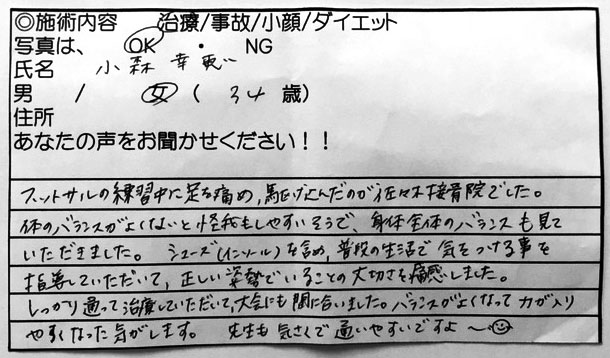 ◎施術内容 治療/事故/小顔/ダイエット
写真は、 OK ・ NG
氏名 小森 幸恵
男 / 女 ( 34 歳)
住所
あなたの声をお聞かせください!!
フットサルの練習中に足を痛め、駆け込んだのが佐々木接骨院でした。
体のバランスがよくないと怪我もしやすいそうで、身体全体のバランスも見て
いただきました。 シューズ(インソール)を含め、普段の生活で気をつける事を
指導していただいて、正しい姿勢でいることの大切さを痛感しました。
しっかり通って治療していただいて、大会にも間に合いました。バランスがよくなって力が入り
やすくなった気がします。 先生も気さくで通いやすいですよ〜